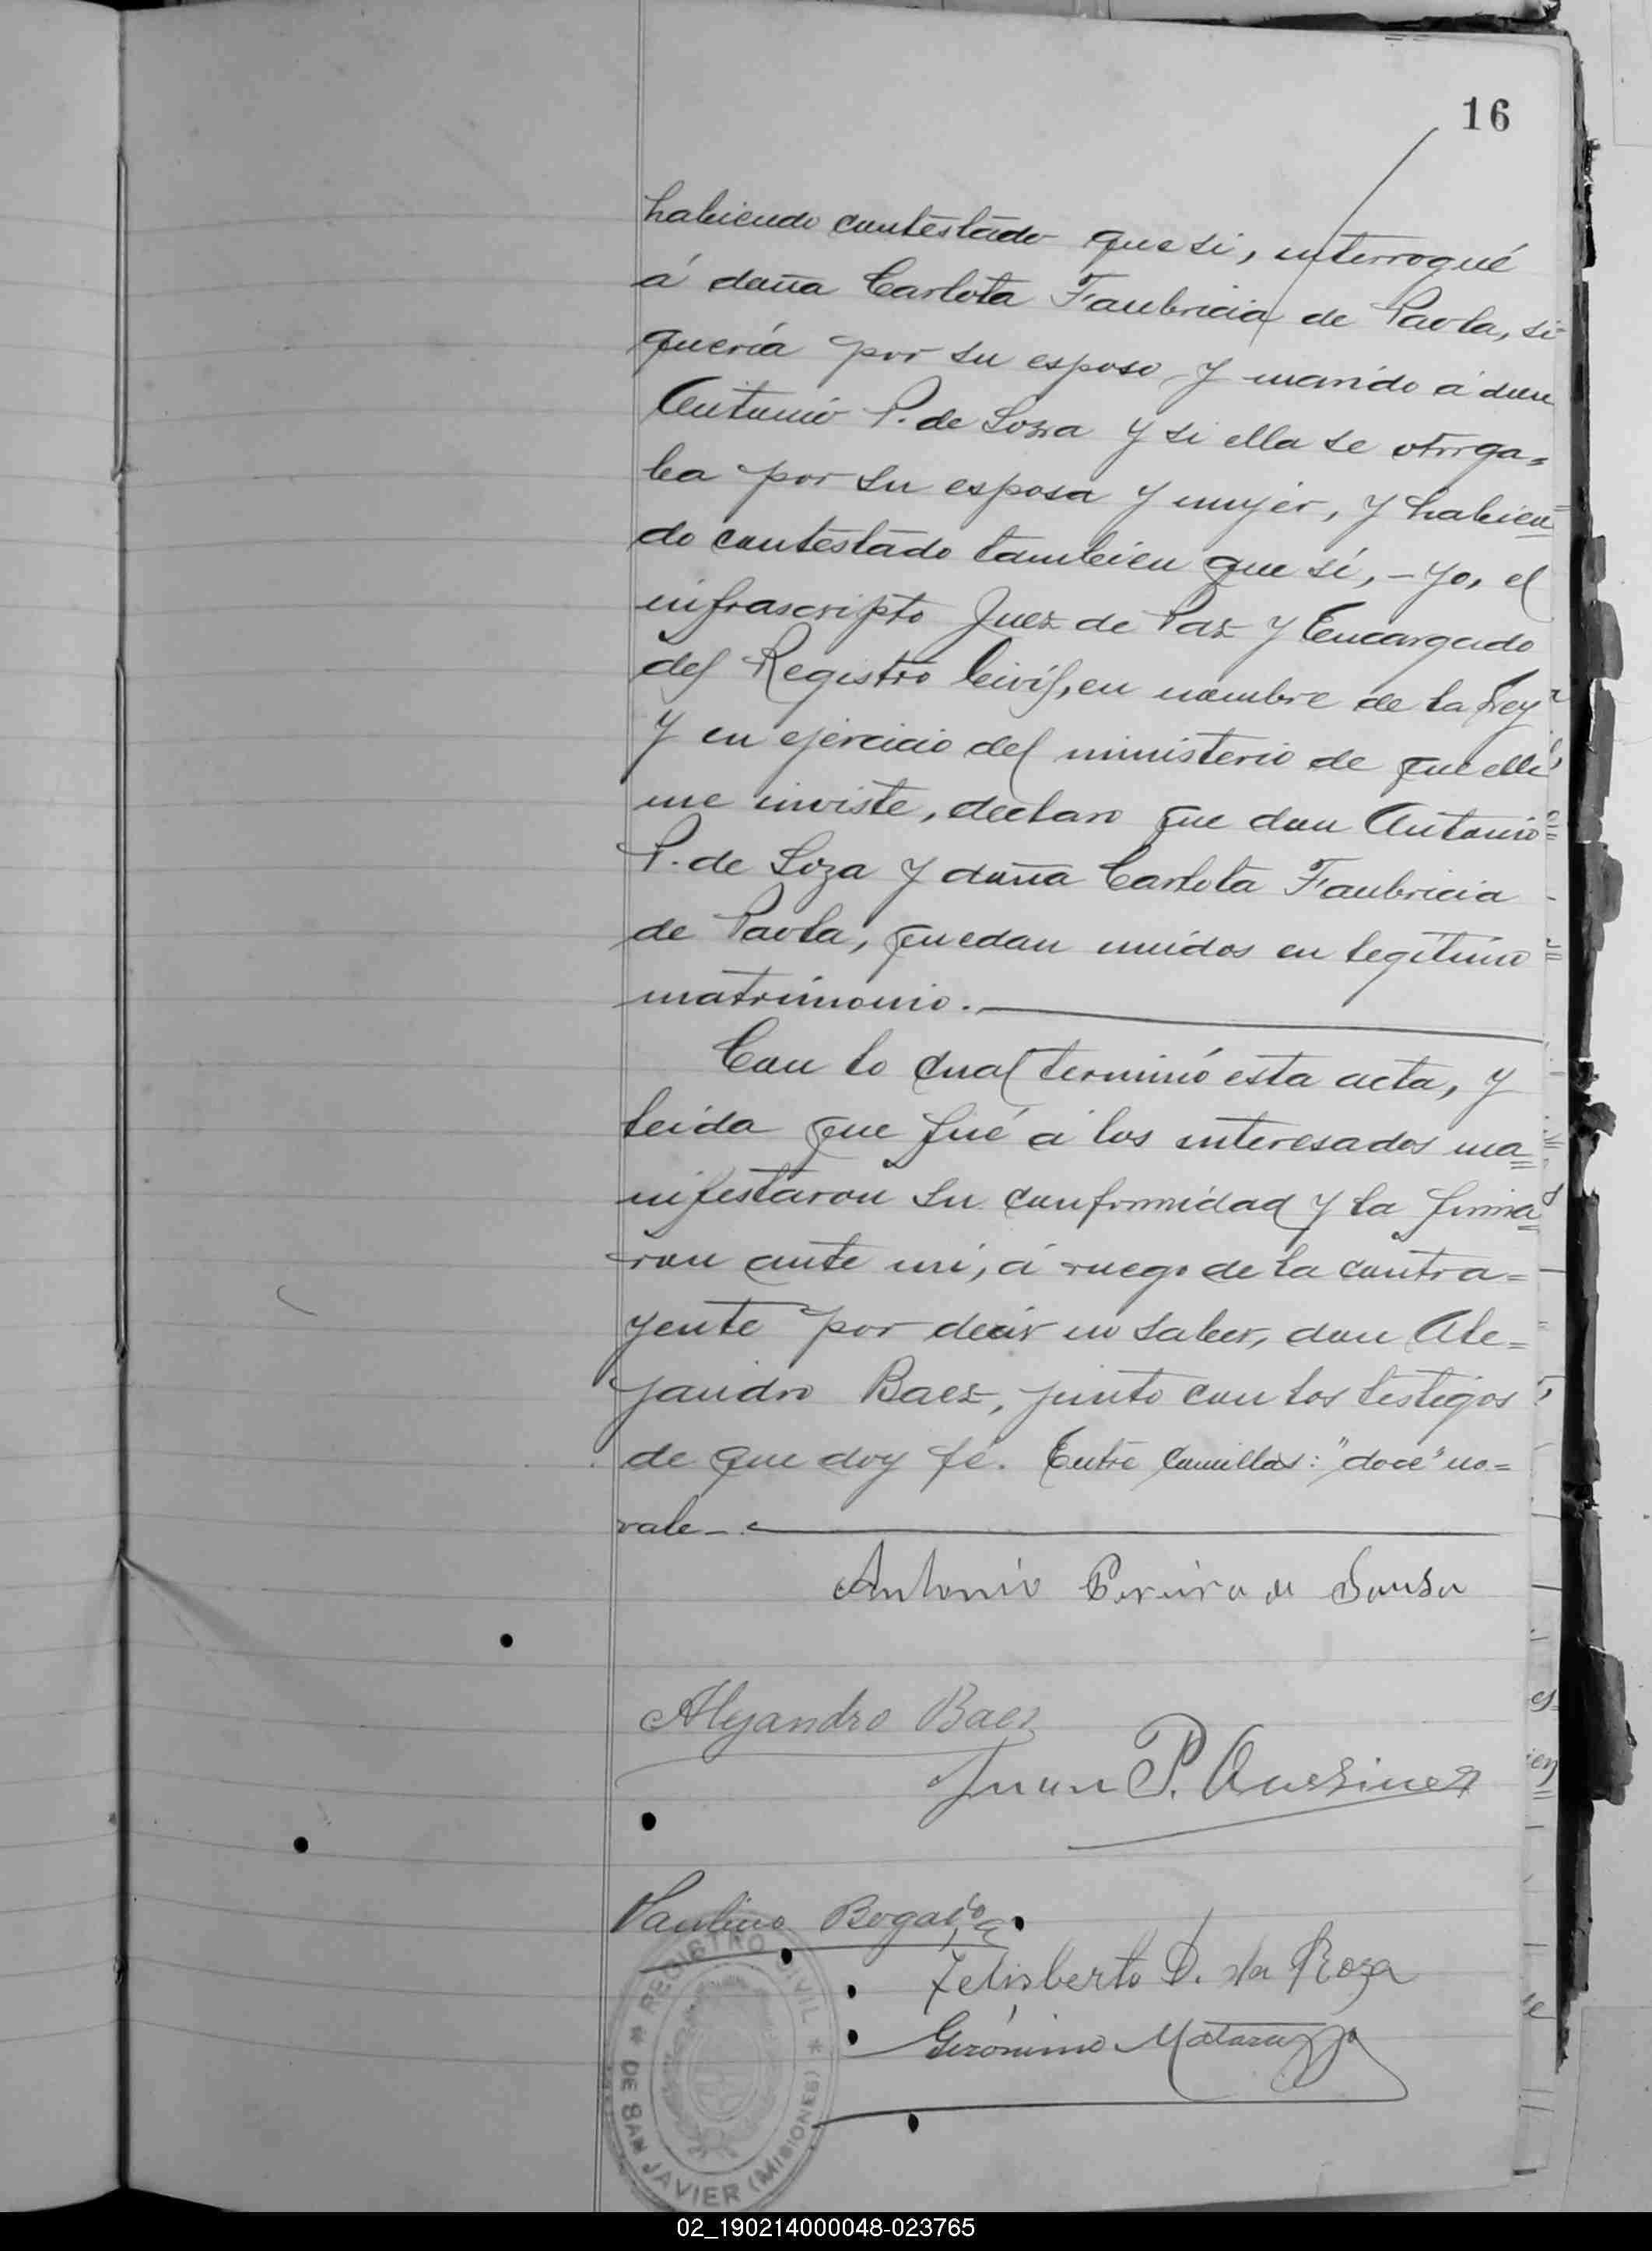 16
habiendo contestado que si, interrogué
á doña Carlota Faubricia de Paola, si
quería por su esposo y marido á don
Antonio P. de Soza y si ella se otorga=
ba por su esposa y mujer, y habien=
do contestado tambien que sí, - yo, el
infrascripto Juez de Paz y Encargado
del Registro Civil, en nombre de la Ley
y en ejercicio del ministerio de que ella
me inviste, declaro que don Antonio
P. de Soza y doña Carlota Faubricia
de Paola, quedan unidos en legítimo
matrimonio.
Con lo cual terminó esta acta, y
leida que fué á los interesados ma=
nifestaron su conformidad y la firma=
ron ante mí, á ruego de la contra=
yente por decir no saber, don Ale=
jandro Baez, junto con los testigos
de que doy fé. Entre comillas: "doce" no=
vale
Antonio Pereira de Sousa
Alejandro Baez
Juan P.
Paulino Bogado
Felisberto D. da Roza
Gerónimo Matarazzo
REGISTRO CIVIL
DE SAN JAVIER (MISIONES)
02_190214000048-023765